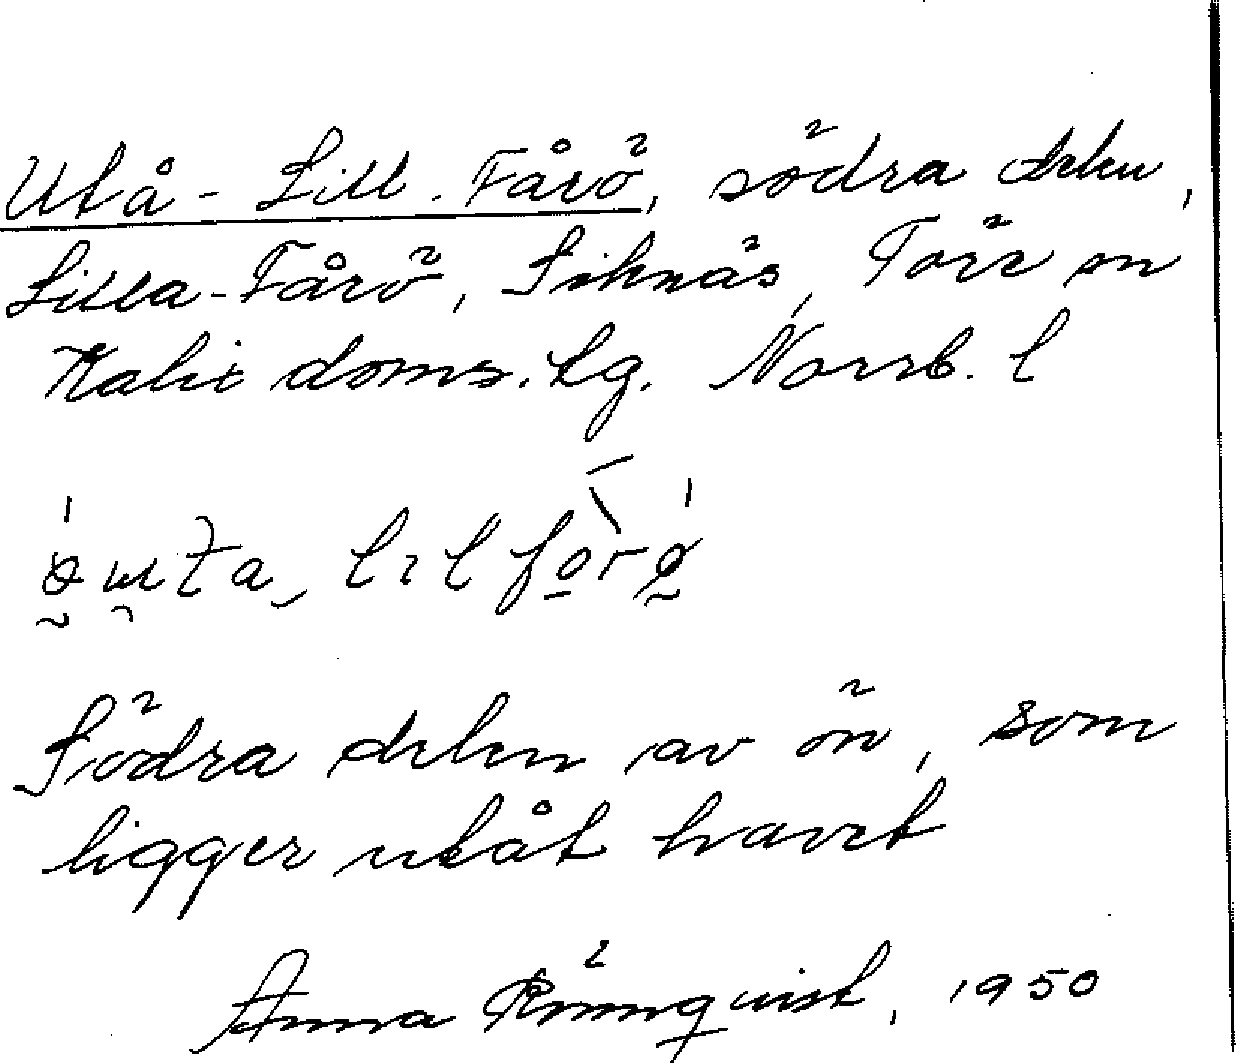 Utå-Lill-Fårö, södra delen,
Lilla-Fårö, Siknäs, Töre sn
Kalix doms.lg. Norrb. l
lɩl
Södra delen av ön, som
ligger utåt havet
Anna Rönnquist, 1950